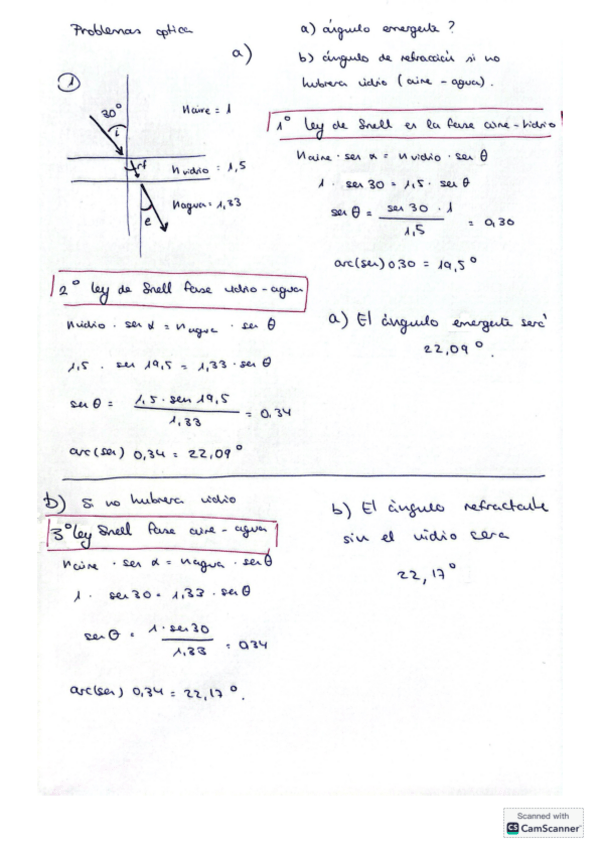 Problemas optica
a)
a) ángulo emergente ?
b) ángulo de refracción si no
hubrera vidrio (aire - agua).
1
30°
i
rf
e
naire = 1
nvidrio = 1,5
nagua = 1,33
1° ley de Snell en la fase aire-vidrio
naire · sen α = nvidrio · sen θ
1 · sen 30 = 1,5 · sen θ
sen θ = sen 30 · 1 / 1,5 = 0,30
arc(sen) 0,30 = 19,5°
2° ley de Snell fase vidrio-agua
nvidrio · sen α = nagua · sen θ
1,5 · sen 19,5 = 1,33 · sen θ
sen θ = 1,5 · sen 19,5 / 1,33 = 0,34
arc(sen) 0,34 = 22,09°
a) El ángulo emergente será
22,09°.
b) Si no hubrera vidrio
3° ley Snell fase aire - agua
naire · sen α = nagua · sen θ
1 · sen 30 = 1,33 · sen θ
sen θ = 1 · sen 30 / 1,33 = 0,34
arc(sen) 0,34 = 22,17°.
b) El ángulo refractante
sin el vidrio sera
22,17°
Scanned with
CS CamScanner